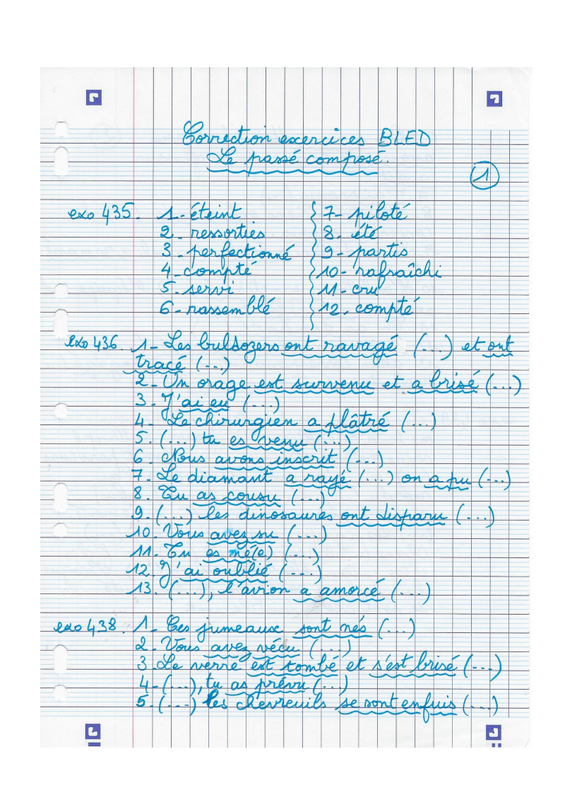 Correction exercices BLED
Le passé composé.
1
exo 435. 1- éteint
2- ressorties
3- perfectionné
4- compté
5- servi
6- rassemblé
7- piloté
8- été
9- partis
10- rafraîchi
11- cru
12- compté
exo 436 1- Les buldozers ont ravagé (...) et ont
tracé (...)
2- Un orage est survenu et a brisé (...)
3- J'ai eu (...)
4- Le chirurgien a plâtré (...)
5- (...) tu es venu (...)
6- Nous avons inscrit (...)
7- Le diamant a rayé (...) on a pu (...)
8- Tu as cousu (...)
9- (...) les dinosaures ont disparu (...)
10- Vous avez su (...)
11- Tu es né(e) (...)
12- J'ai oublié (...)
13- (...), l'avion a amorcé (...)
exo 438. 1- Ces jumeaux sont nés (...)
2- Vous avez vécu (...)
3- Le verre est tombé et s'est brisé (...)
4- (...), tu as prévu (...)
5- (...) les chevreuils se sont enfuis (...)